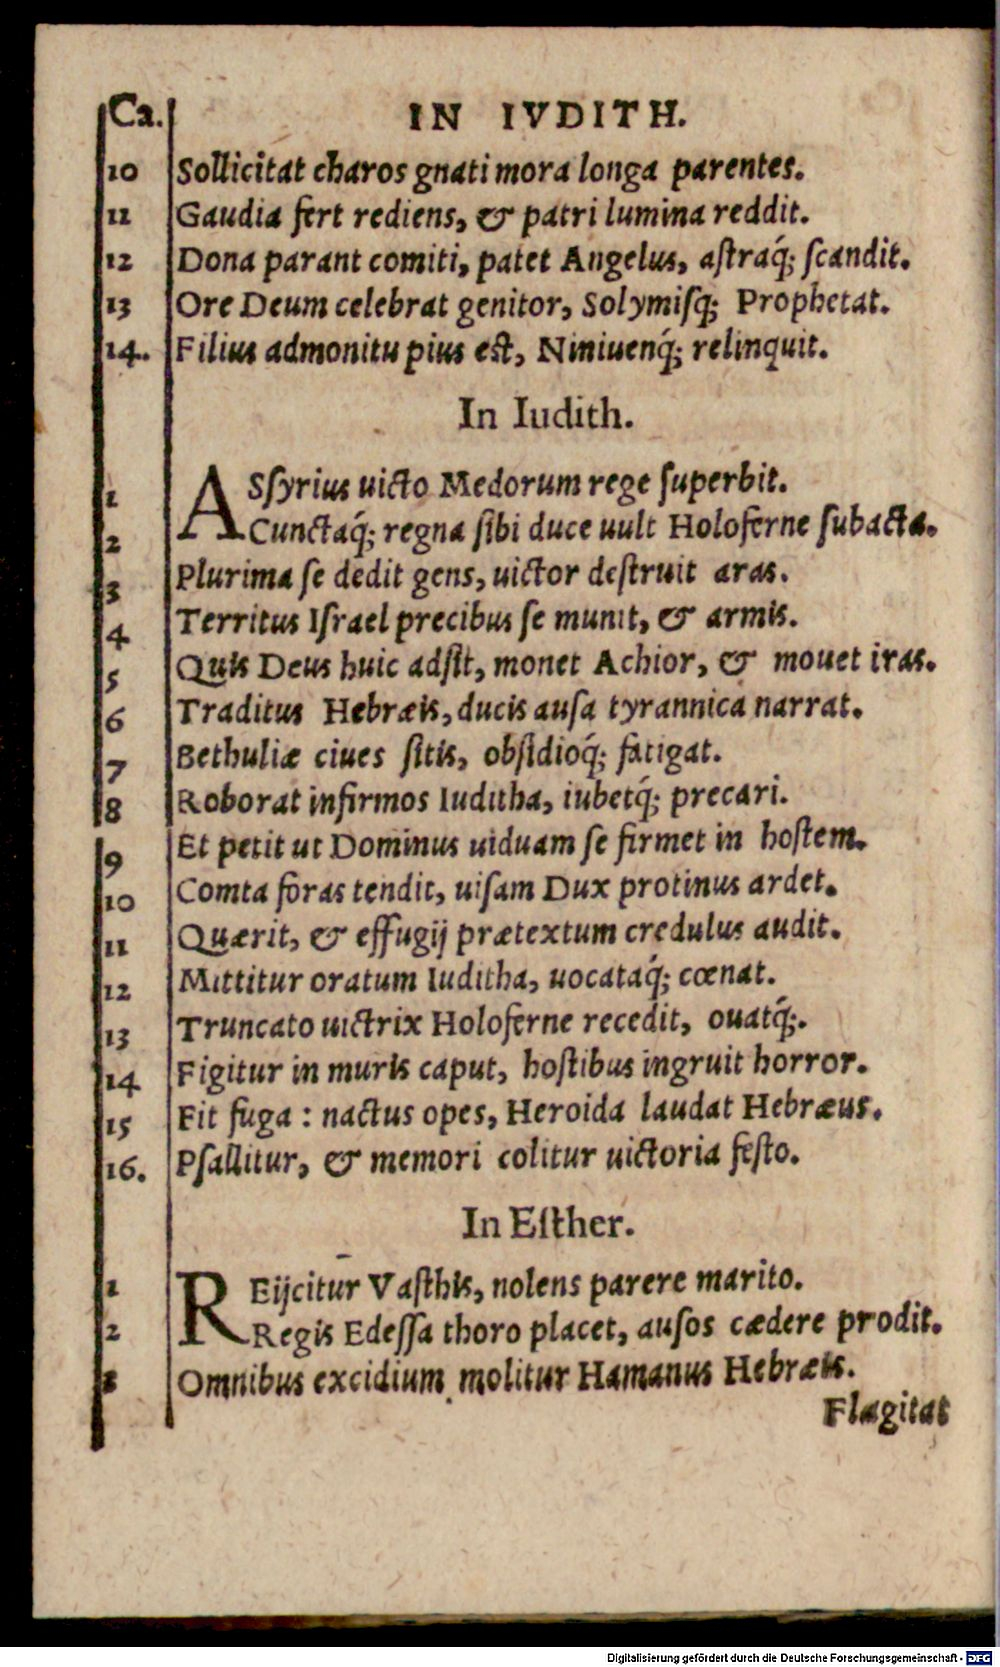 Ca. IN IVDITH.
10 Sollicitat charos gnati mora longa parentes.
11 Gaudia fert rediens, & patri lumina reddit.
12 Dona parant comiti, patet Angelus, aſtraq́; ſcandit.
13 Ore Deum celebrat genitor, Solymiſq; Prophetat.
14. Filius admonitu pius eſt, Niniuenq́; relinquit.
In Iudith.
1 ASſyrius uicto Medorum rege ſuperbit.
2 Cunctaq́; regna ſibi duce uult Holoferne ſubacta.
3 Plurima ſe dedit gens, uictor deſtruit aras.
4 Territus Iſrael precibus ſe munit, & armis.
5 Quis Deus huic adſit, monet Achior, & mouet iras.
6 Traditus Hebræis, ducis auſa tyrannica narrat.
7 Bethuliæ ciues ſitis, obſidioq́; fatigat.
8 Roborat infirmos Iuditha, iubetq́; precari.
9 Et petit ut Dominus uiduam ſe firmet in hoſtem.
10 Comta foras tendit, uiſam Dux protinus ardet.
11 Quærit, & effugij prætextum credulus audit.
12 Mittitur oratum Iuditha, uocataq́; cœnat.
13 Truncato uictrix Holoferne recedit, ouatq́;.
14 Figitur in muris caput, hoſtibus ingruit horror.
15 Fit fuga : nactus opes, Heroida laudat Hebræus.
16. Pſallitur, & memori colitur uictoria feſto.
In Eſther.
1 REijcitur Vaſthis, nolens parere marito.
2 Regis Edeſſa thoro placet, auſos cædere prodit.
3 Omnibus excidium molitur Hamanus Hebræis.
Flagitat
Digitalisierung gefördert durch die Deutsche Forschungsgemeinschaft - DFG